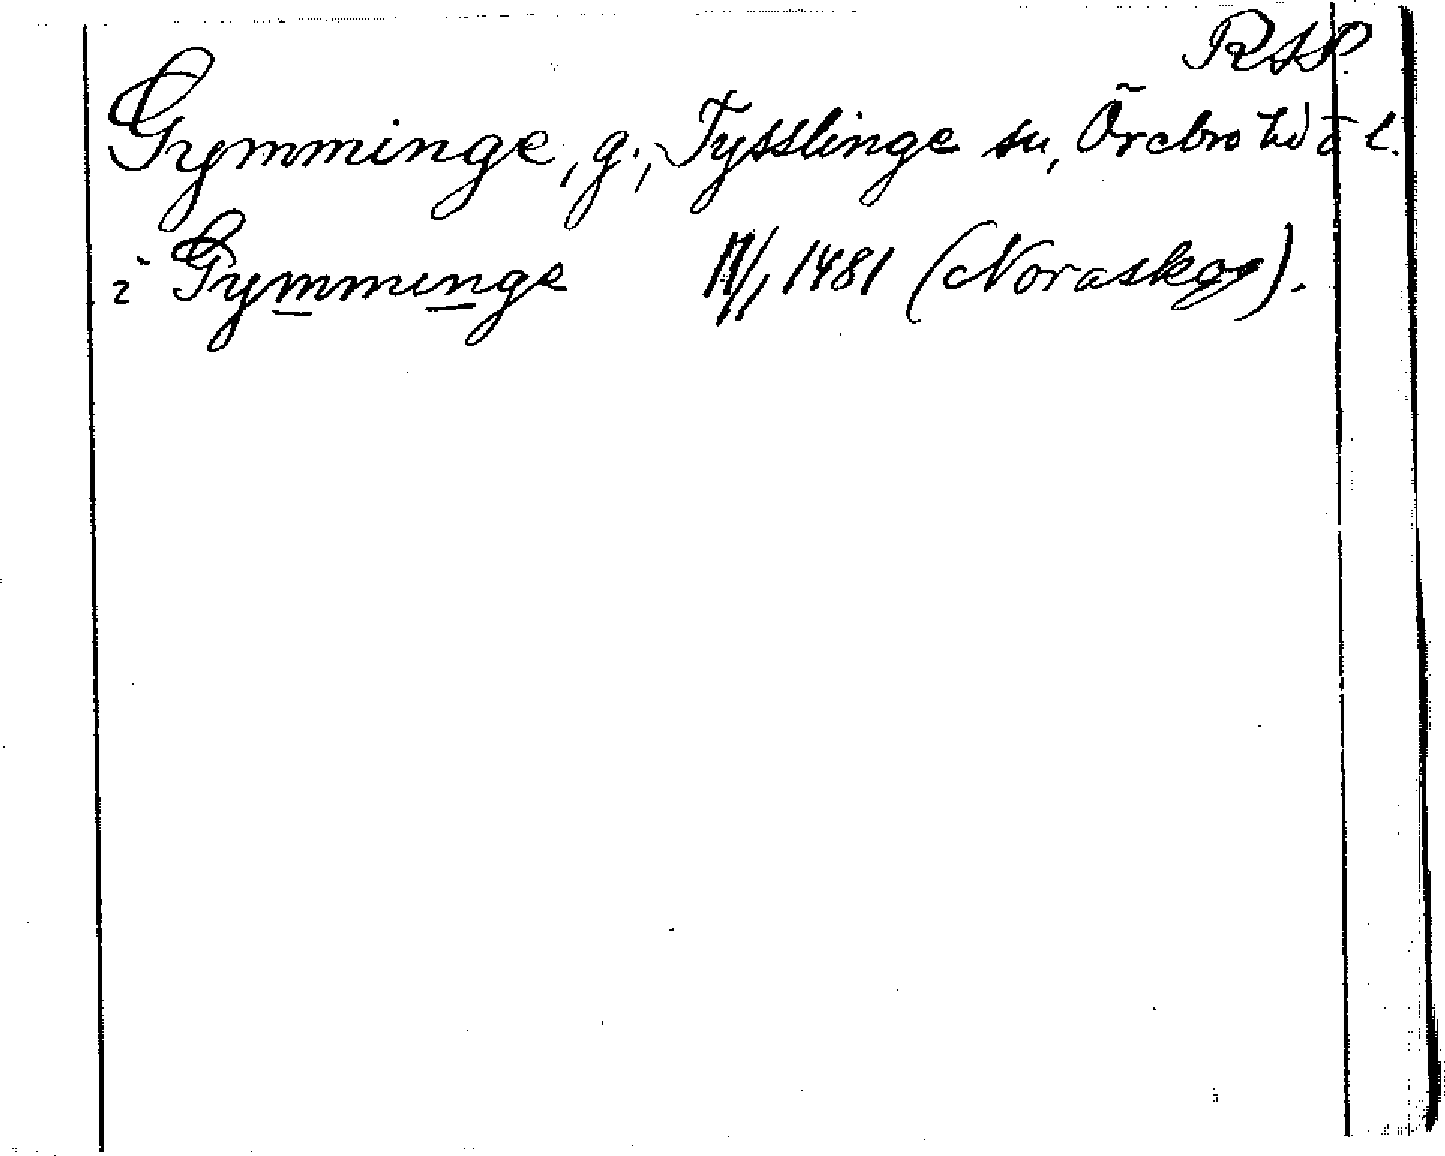 RAP.
Gymminge, g., Tysslinge sn, Örebro hd o l.
i Gymminge 1481 (Noraskog).